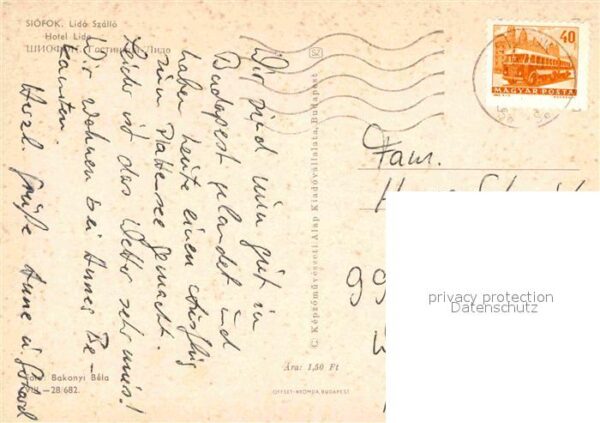 SIÓFOK. Lidó Szálló
Hotel Lido
ШИОФОК. Гостиница Лидо
Wir sind nun gut in
Budapest gelandet und
haben heute einen Ausflug
zum Plattensee gemacht.
Leider ist das Wetter sehr mies!
Wir wohnen bei Annes Be-
kannten.
Herzl. Grüße Anne u.
Foto: Bakonyi Béla
VIII.—28/682.
© Képzőművészeti Alap Kiadóvállalata, Budapest
Ára: 1,50 Ft
OFFSET-NYOMDA, BUDAPEST
40
MAGYAR POSTA
Fam.
99
privacy protection
Datenschutz